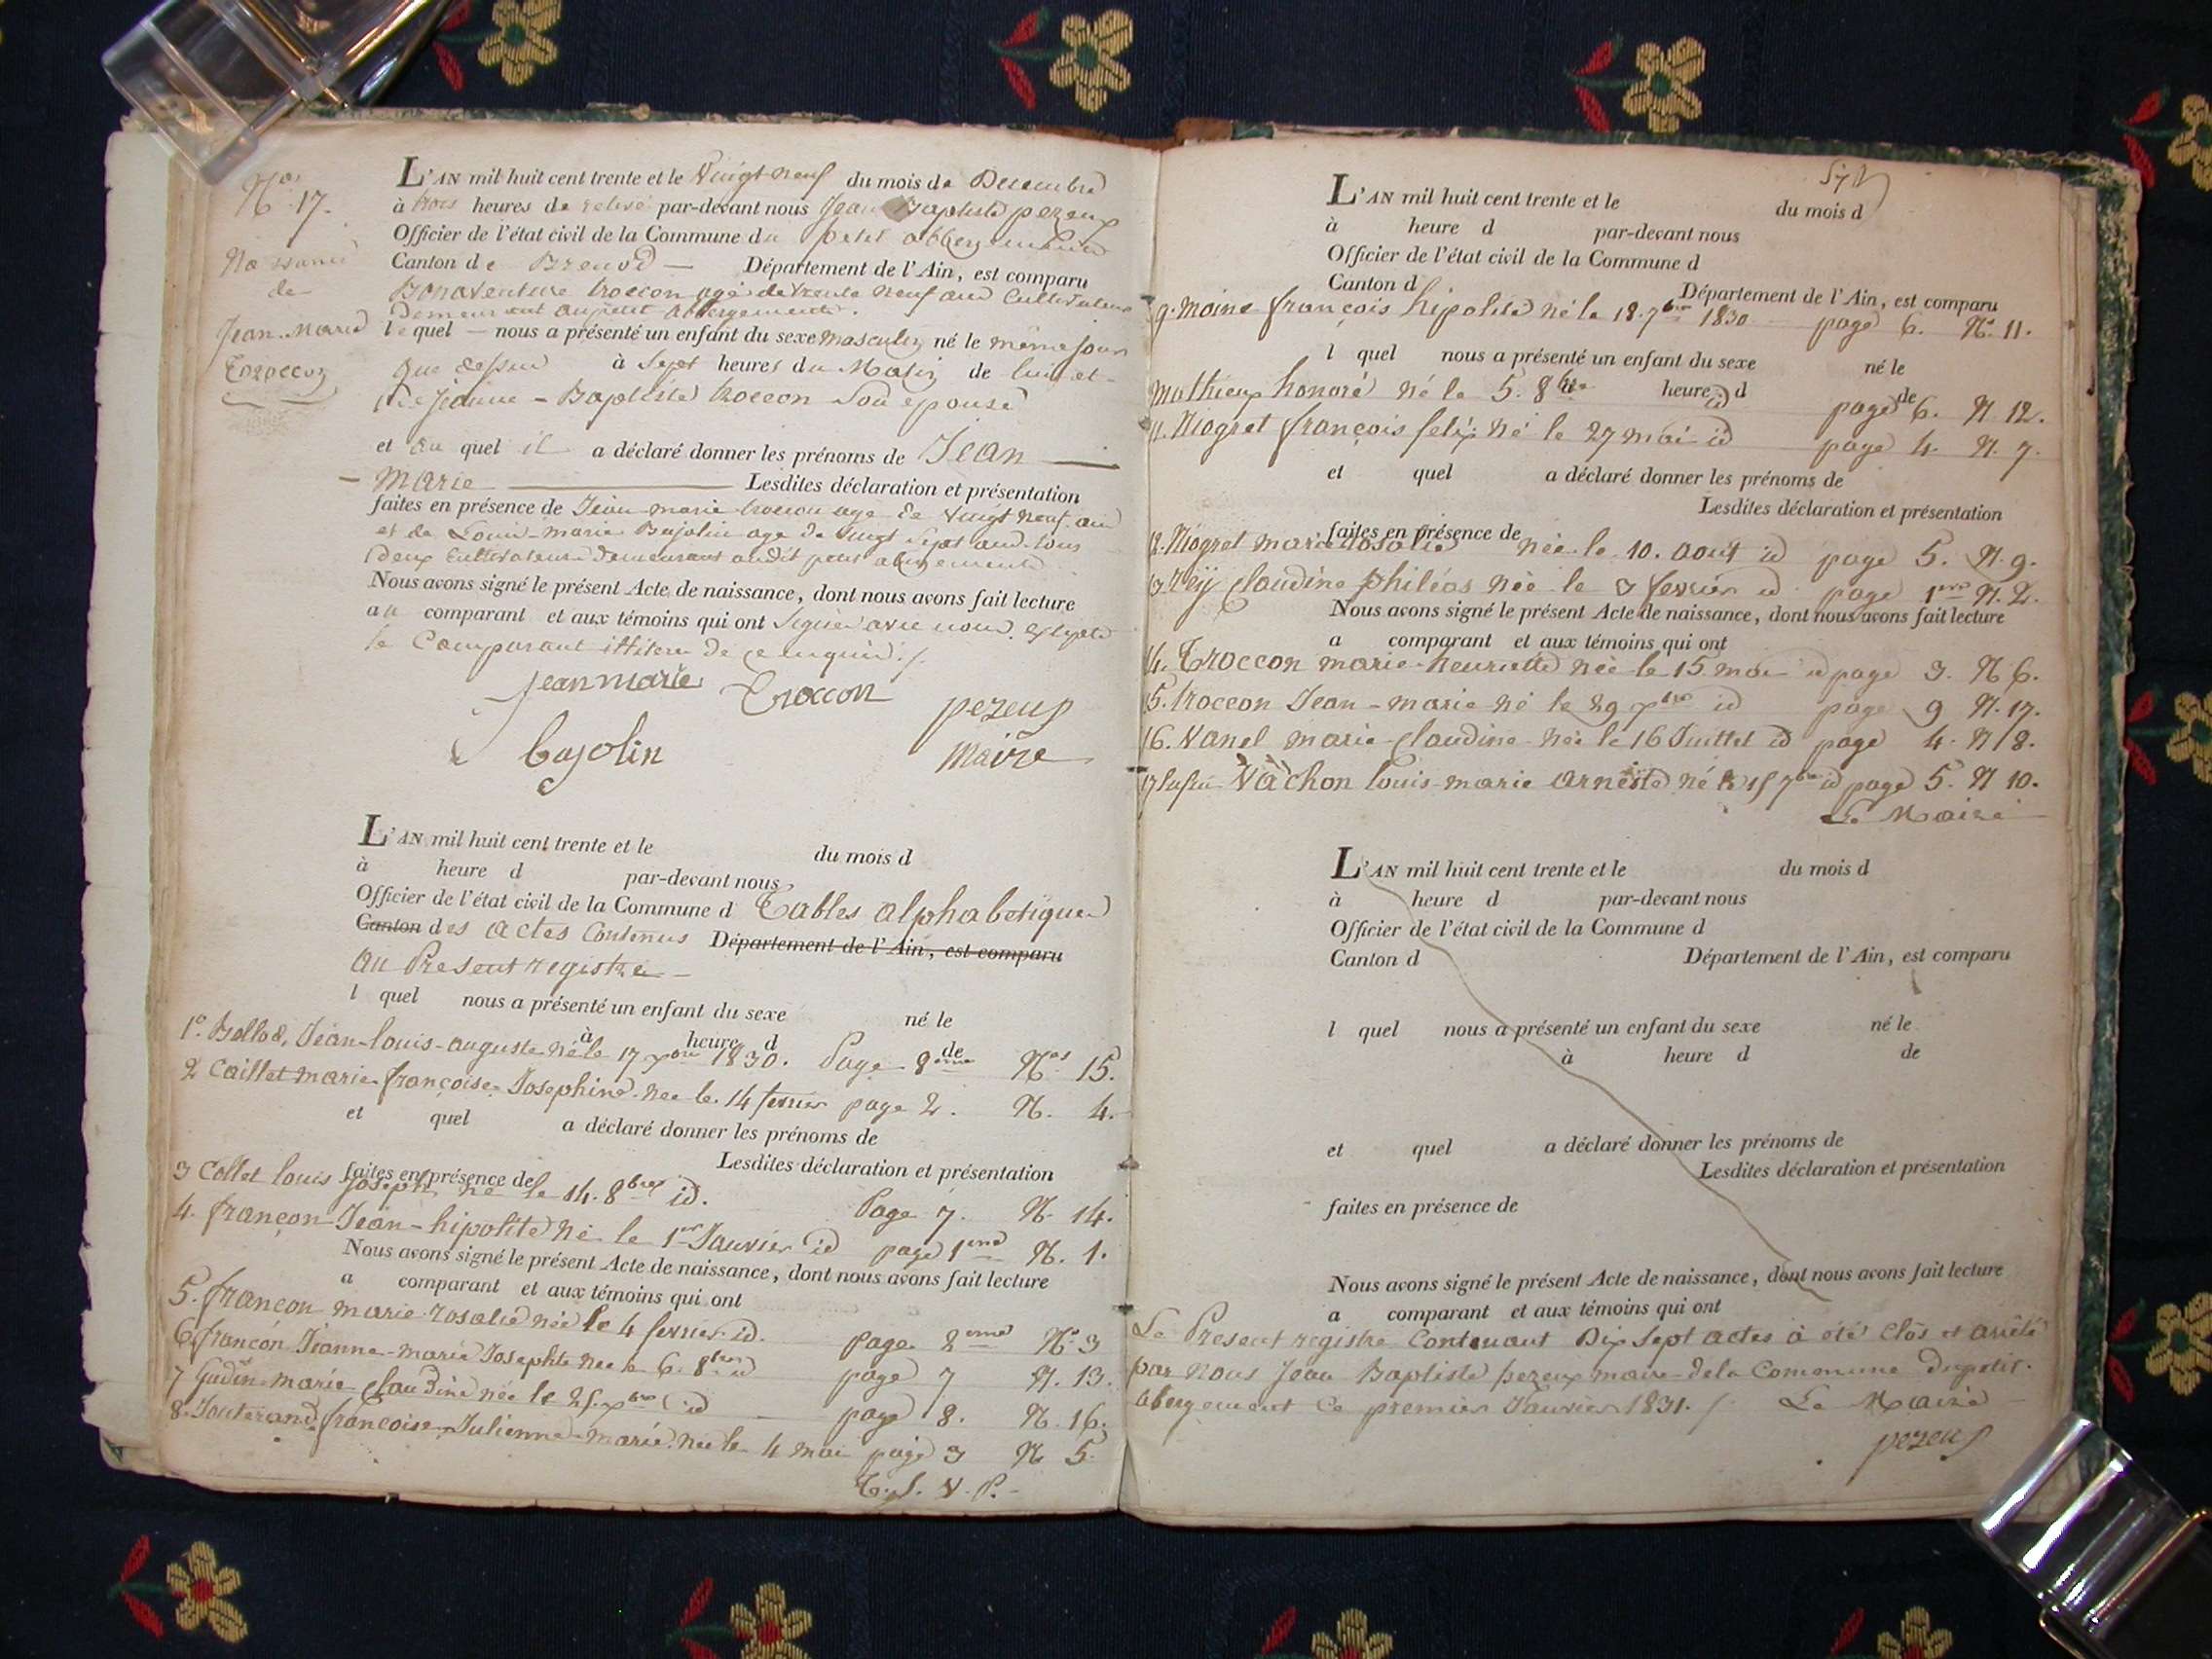 Nº 17.
Naissance
de
Jean Marie
Troccon
L'AN mil huit cent trente et le Vingt neuf du mois de Decembre
à trois heures de relevé par-devant nous Jean Baptiste pezeux
Officier de l'état civil de la Commune du petit abbergement
Canton de Brenod — Département de l'Ain, est comparu
Bonaventure troccon agé de trente neuf ans Cultivateur
demeurant au petit abbergement.
lequel — nous a présenté un enfant du sexe masculin né le même jour
que dessus à Sept heures du Matin de lui et
de jeanne - Baptiste troccon Son épouse
et au quel il a déclaré donner les prénoms de Jean —
— Marie — Lesdites déclaration et présentation
faites en présence de Jean-marie troccon age de vingt neuf ans
et de Louis-marie Bajolin age de vingt Sept ans tous
deux Cultivateurs demeurant audit petit abergement
Nous avons signé le présent Acte de naissance, dont nous avons fait lecture
au comparant et aux témoins qui ont Signé avec nous. excepté
le Comparant illitere de ce enquis ./.
jean marie Troccon pezeux
bajolin Maire
L'AN mil huit cent trente et le du mois d
à heure d par-devant nous
Officier de l'état civil de la Commune d Tables alphabetiques
Canton des actes Contenus Département de l'Ain, est comparu
au Present registre —
l quel nous a présenté un enfant du sexe né le
à heure d de
1º. Ballod, Jean-louis-auguste né le 17 xbre 1830. Page 8eme Nos 15.
2 Caillet marie françoise Josephine née le 14 fevrier page 2. N. 4.
et quel a déclaré donner les prénoms de
Lesdites déclaration et présentation
faites en présence de
3 Collet louis joseph né le 14. 8bre id. Page 7. N. 14.
4. françon Jean-hipolite né le 1er Janvier id page 1ere N. 1.
Nous avons signé le présent Acte de naissance, dont nous avons fait lecture
a comparant et aux témoins qui ont
5. françon marie rosalie née le 4 fevrier id. page 2eme Nº 3
6. françon Jeanne-marie Josephte née le 6. 8bre id page 7 N. 13.
7 Gudin marie claudine née le 25. xbre id page 8. N. 16.
8. Jouterand françoise Julienne-marie née le 4 mai page 3 N 5.
T. S. V. P.
L'AN mil huit cent trente et le du mois d
à heure d par-devant nous
Officier de l'état civil de la Commune d
Canton d Département de l'Ain, est comparu
9. moine françois hipolite né le 18. 7bre 1830 page 6. N. 11.
l quel nous a présenté un enfant du sexe né le
heure d de
mathieux honoré né le 5. 8bre id page 6. N. 12.
11. Niogret françois felix né le 27 mai id page 4. N. 7.
et quel a déclaré donner les prénoms de
Lesdites déclaration et présentation
faites en présence de
12. Niogret marie rosalie née le 10. aout id page 5. N. 9.
13 rey claudine philéas née le 3 fevrier id page 1ere N. 2.
Nous avons signé le présent Acte de naissance, dont nous avons fait lecture
a comparant et aux témoins qui ont
14. Troccon marie-henriette née le 15 mai id page 3. N 6.
15. troccon Jean-marie né le 29 xbre id page 9 N. 17.
16. Vanel marie-claudine née le 16 Juillet id page 4. N 8.
17 Vachon louis-marie arneste né le 15 7bre id page 5. N 10.
Le Maire
L'AN mil huit cent trente et le du mois d
à heure d par-devant nous
Officier de l'état civil de la Commune d
Canton d Département de l'Ain, est comparu
l quel nous a présenté un enfant du sexe né le
à heure d de
et quel a déclaré donner les prénoms de
Lesdites déclaration et présentation
faites en présence de
Nous avons signé le présent Acte de naissance, dont nous avons fait lecture
a comparant et aux témoins qui ont
Le Present registre Contenant Dix Sept actes à été clos et arrêté
par Nous Jean Baptiste pezeux maire de la Commune du petit.
abergement Ce premier Janvier 1831. /. Le Maire
pezeux